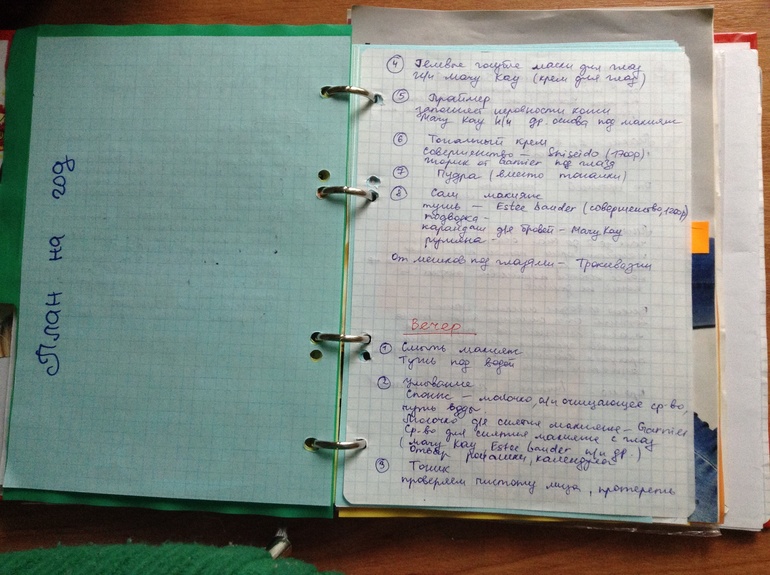 План на год
④ Гелевые голубые маски для глаз
и/и Mary Kay (крем для глаз)
⑤ Праймер
заполняет неровности кожи
Mary Kay и/и др. основа под макияж
⑥ Тональный крем
совершенство – Shiseido (1700р)
шарик от Garnier под глаза
⑦ Пудра (вместо тоналки)
⑧ Сам макияж
тушь – Estee Lauder (совершенство, 1200р)
подводка –
карандаш для бровей – Mary Kay
румяна –
От мешков под глазами – Троксевазин
Вечер
① Смыть макияж
Тушь под водой
② Умывание
Спонж – молочко, и/и очищающее ср-во,
чуть воды
Молочко для снятия макияжа – Garnier
Ср-во для снятия макияжа с глаз
(Mary Kay Estee Lauder и/и др.)
Отвар ромашки, календулы
③ Тоник
проверяем чистоту лица, протереть